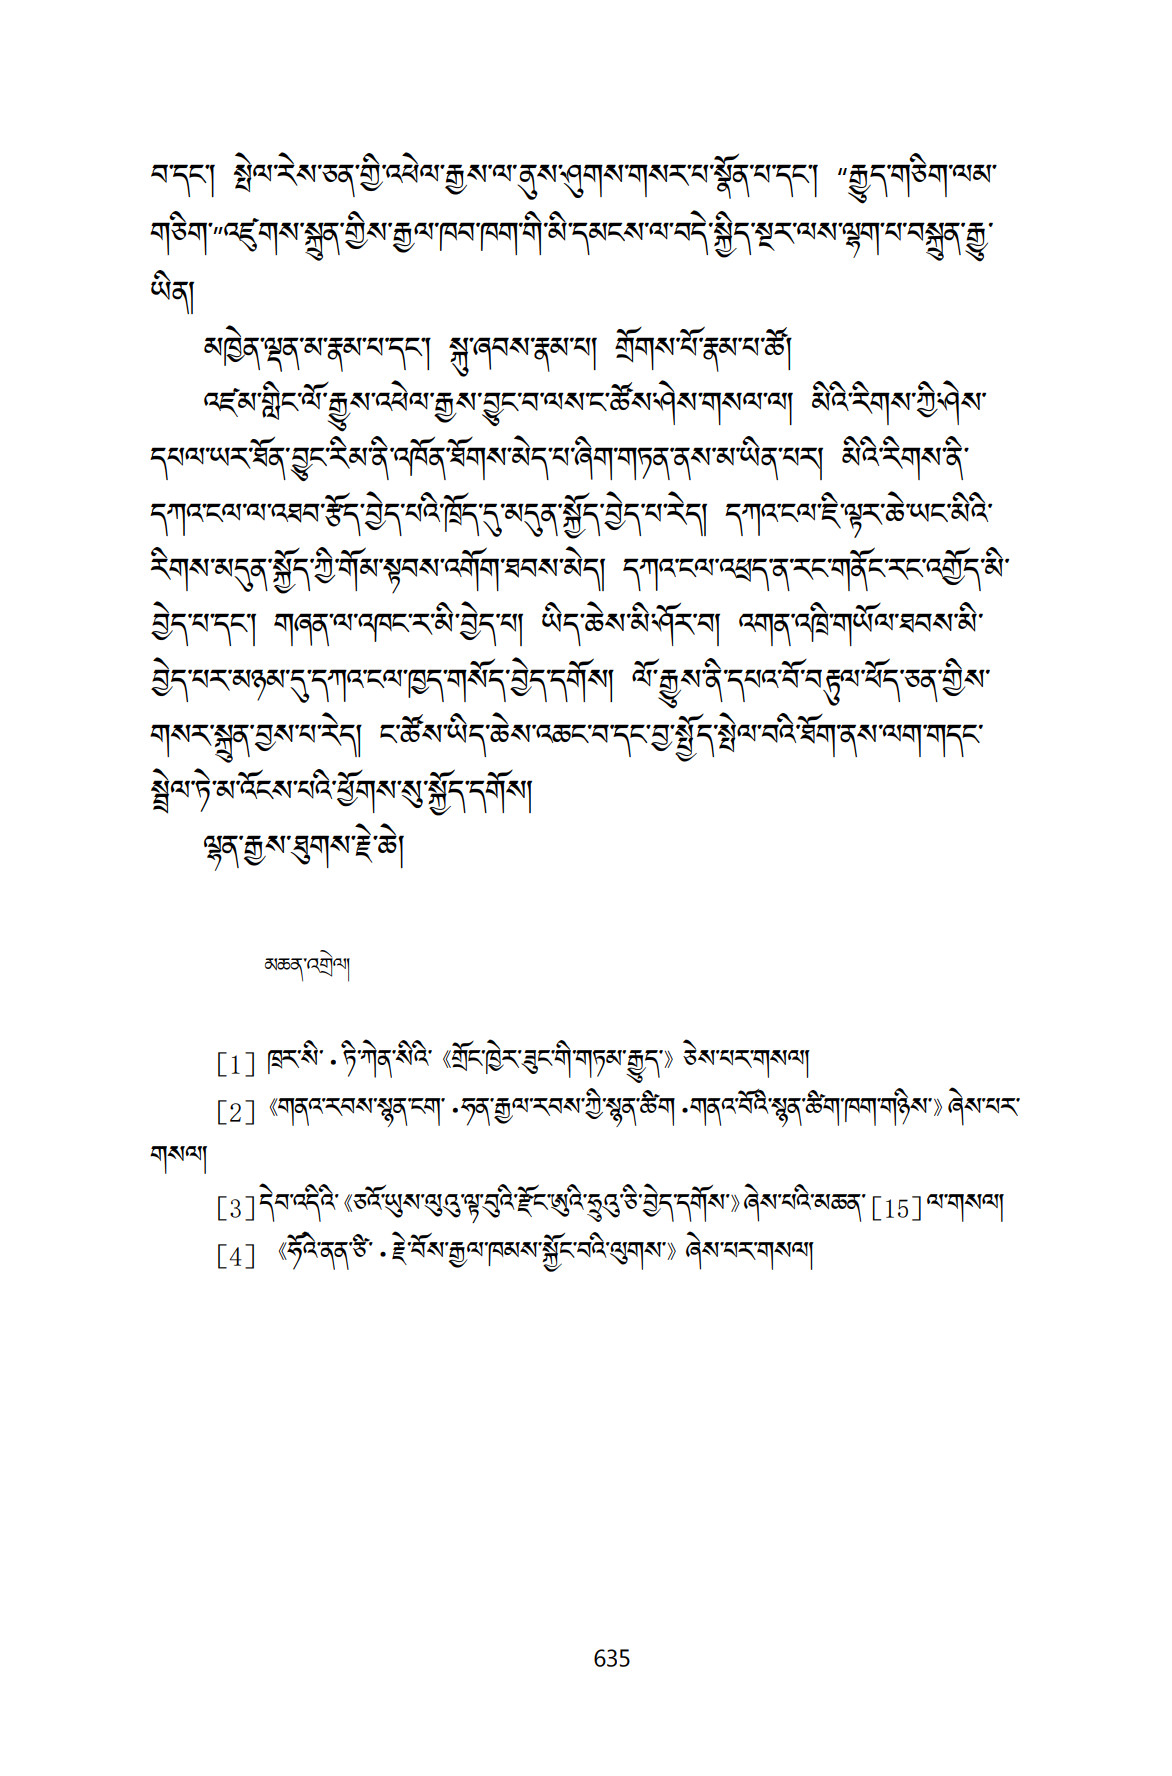 བ་དང་། སྤེལ་རེས་ཅན་གྱི་འཕེལ་རྒྱས་ལ་ནུས་ཤུགས་གསར་པ་སྣོན་པ་དང་། “རྒྱུད་གཅིག་ལམ་
གཅིག་”འཛུགས་སྐྲུན་གྱིས་རྒྱལ་ཁབ་ཁག་གི་མི་དམངས་ལ་བདེ་སྐྱིད་སྔར་ལས་ལྷག་པ་བསྐྲུན་རྒྱུ་
ཡིན།
མཁྱེན་ལྡན་མ་རྣམ་པ་དང་། སྐུ་ཞབས་རྣམ་པ། གྲོགས་པོ་རྣམ་པ་ཚོ།
འཛམ་གླིང་ལོ་རྒྱུས་འཕེལ་རྒྱས་བྱུང་བ་ལས་ང་ཚོས་ཤེས་གསལ་ལ། མིའི་རིགས་ཀྱི་ཤེས་
དཔལ་ཡར་ཐོན་བྱུང་རིམ་ནི་འཁོན་ཐོགས་མེད་པ་ཞིག་གཏན་ནས་མ་ཡིན་པར། མིའི་རིགས་ནི་
དཀའ་ངལ་ལ་འཐབ་རྩོད་བྱེད་པའི་ཁྲོད་དུ་མདུན་སྐྱོད་བྱེད་པ་རེད། དཀའ་ངལ་ཇི་ལྟར་ཆེ་ཡང་མིའི་
རིགས་མདུན་སྐྱོད་ཀྱི་གོམ་སྟབས་འགོག་ཐབས་མེད། དཀའ་ངལ་འཕྲད་ན་རང་གནོང་རང་འགྱོད་མི་
བྱེད་པ་དང་། གཞན་ལ་འཁང་ར་མི་བྱེད་པ། ཡིད་ཆེས་མི་ཤོར་བ། འགན་འཁྲི་གཡོལ་ཐབས་མི་
བྱེད་པར་མཉམ་དུ་དཀའ་ངལ་ཁྱད་གསོད་བྱེད་དགོས། ལོ་རྒྱུས་ནི་དཔའ་བོ་བརྟུལ་ཕོད་ཅན་གྱིས་
གསར་སྐྲུན་བྱས་པ་རེད། ང་ཚོས་ཡིད་ཆེས་འཆང་བ་དང་བྱ་སྤྱོད་སྤེལ་བའི་ཐོག་ནས་ལག་གདང་
སྦྲེལ་ཏེ་མ་འོངས་པའི་ཕྱོགས་སུ་སྐྱོད་དགོས།
ལྷན་རྒྱས་ཐུགས་རྗེ་ཆེ།
མཆན་འགྲེལ།
[1] ཁྲར་སི་ · ཏི་ཀེན་སིའི་《གྲོང་ཁྱེར་ཟུང་གི་གཏམ་རྒྱུད་》ཅེས་པར་གསལ།
[2] 《གནའ་རབས་སྙན་ངག་ ·ཧན་རྒྱལ་རབས་ཀྱི་སྙན་ཚིག ·གནའ་བོའི་སྙན་ཚིག་ཁག་གཉིས་》ཞེས་པར་
གསལ།
[3]དེབ་འདིའི་《ཅའོ་ཡུས་ལུའུ་ལྟ་བུའི་རྫོང་ཨུའི་ཧྲུའུ་ཅི་བྱེད་དགོས་》ཞེས་པའི་མཆན་[15]ལ་གསལ།
[4] 《ཧོའི་ནན་ཙི་ · རྗེ་བོས་རྒྱལ་ཁམས་སྐྱོང་བའི་ལུགས་》ཞེས་པར་གསལ།
635